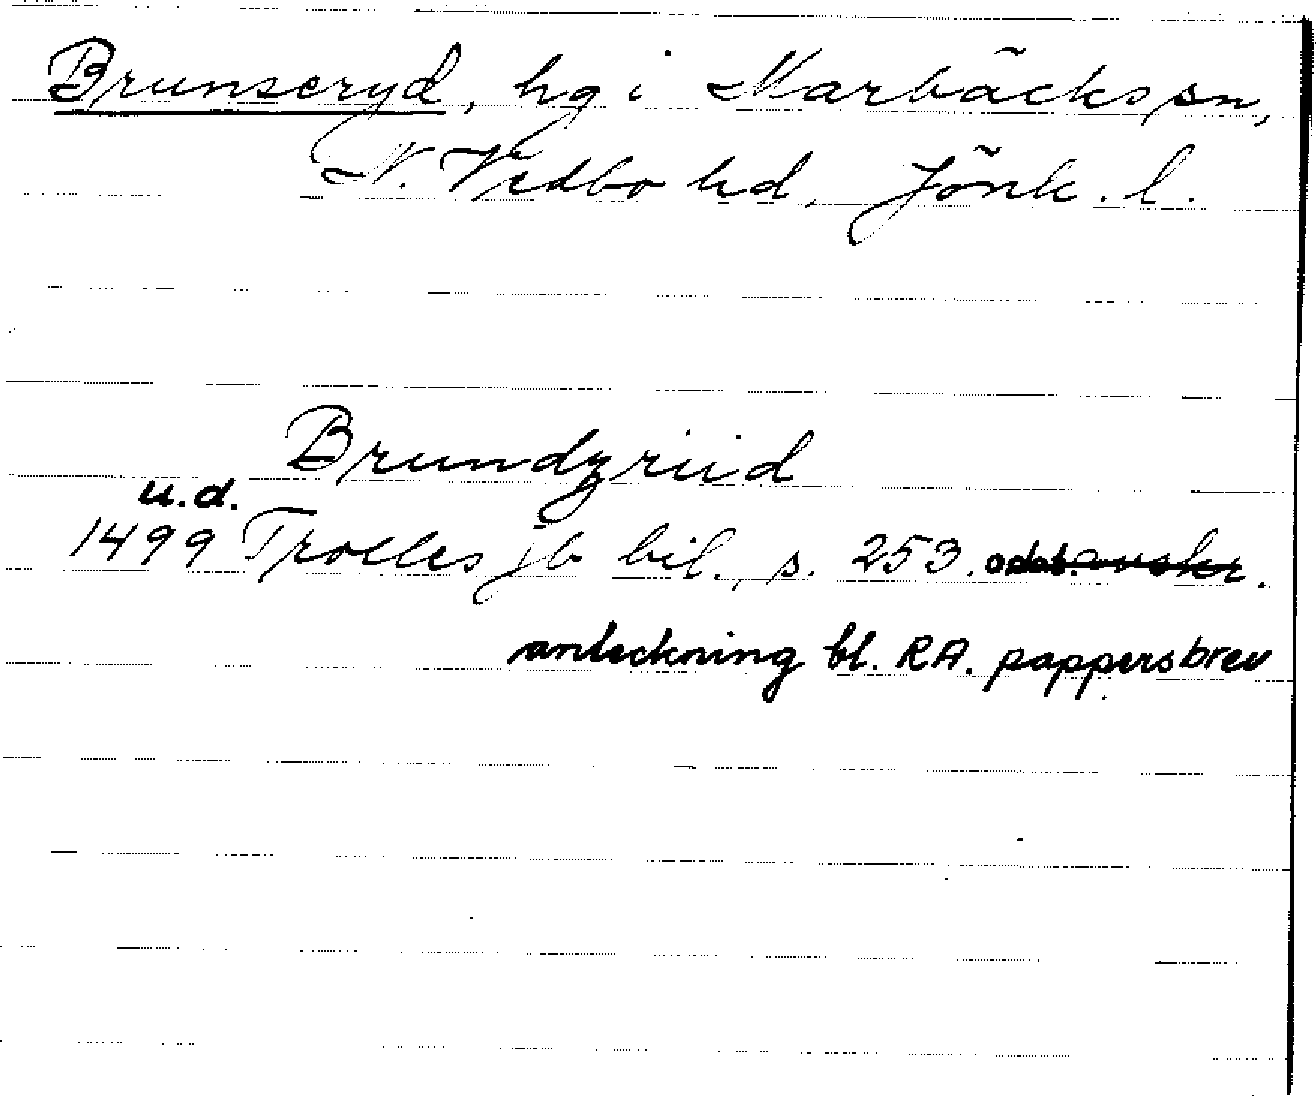 Brunseryd, hg i Marbäcks sn,
N. Vedbo hd, Jönk. l.
Brundzriid
u.d.
1499 Trolles jb bil., s. 253. odat. avskr.
anteckning bl. RA. pappersbrev